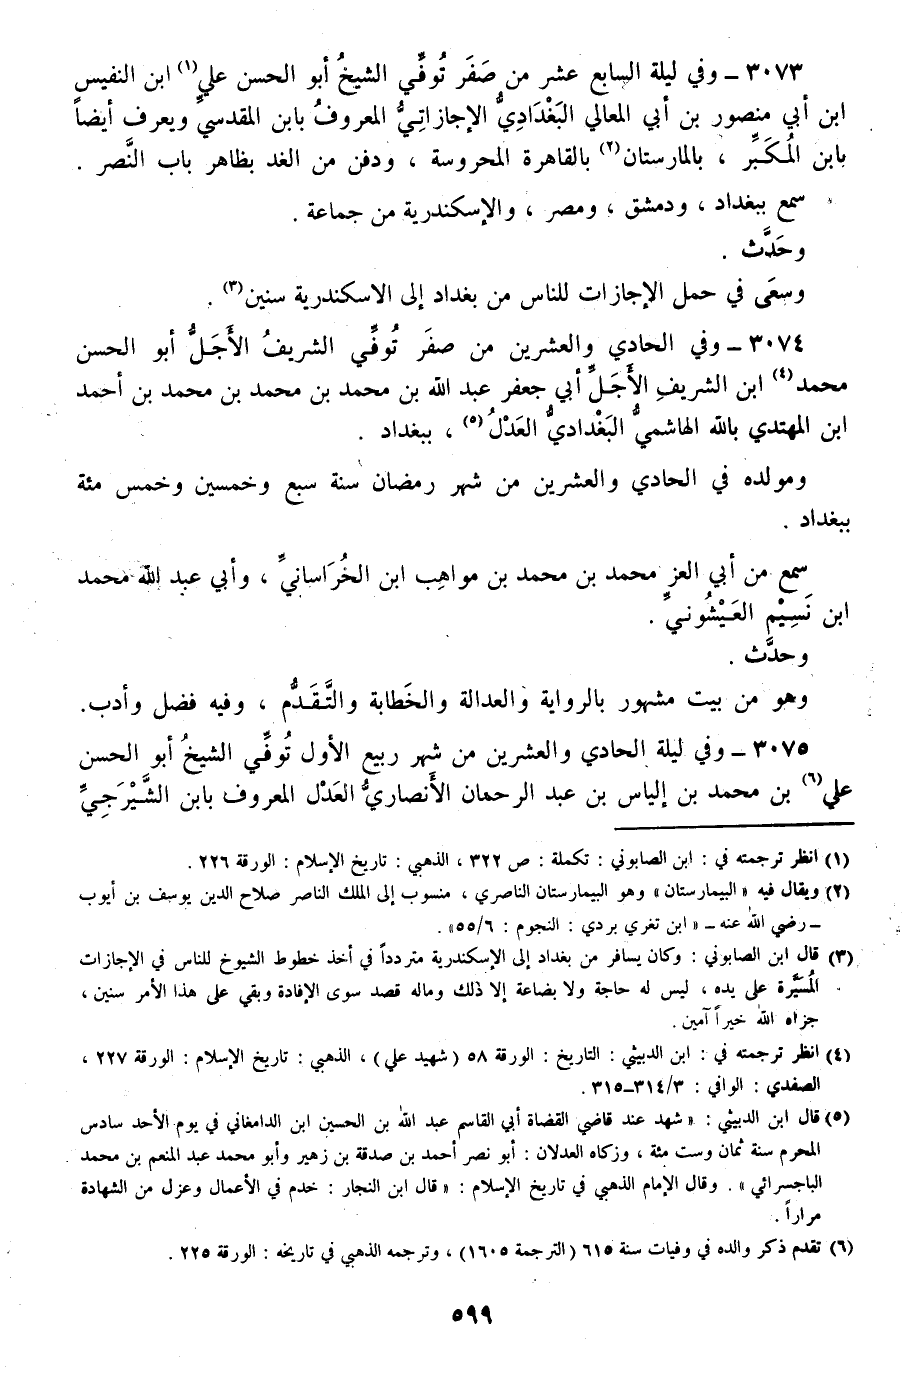 ٣٠٧٣ ـ وفي ليلة السابع عشر من صَفَر تُوفِّي الشيخُ أبو الحسن علي(١) ابن النفيس
ابن أبي منصور بن أبي المعالي البَغْدَاديُّ الإجازاتيُّ المعروفُ بابن المقدسيِّ ويعرف أيضاً
بابن المُكَبِّر ، بالمارستان(٢) بالقاهرة المحروسة ، ودفن من الغد بظاهر باب النَّصر .
سمع ببغداد ، ودمشق ، ومصر ، والإسكندرية من جماعة .
وحَدَّث .
وسعَى في حمل الإجازات للناس من بغداد إلى الاسكندرية سنين(٣) .
٣٠٧٤ ـ وفي الحادي والعشرين من صفَر تُوفِّي الشريفُ الأَجَلُّ أبو الحسن
محمد(٤) ابن الشريفِ الأَجَلِّ أبي جعفر عبد الله بن محمد بن محمد بن محمد بن أحمد
ابن المهتدي بالله الهاشميُّ البَغْداديُّ العَدْلُ(٥) ، ببغداد .
ومولده في الحادي والعشرين من شهر رمضان سنة سبع وخمسين وخمس مئة
ببغداد .
سمع من أبي العز محمد بن محمد بن مواهِب ابن الخُرَاسانيِّ ، وأبي عبد الله محمد
ابن نَسِيْم العَيْشُونيِّ .
وحدَّث .
وهو من بيت مشهور بالرواية والعدالة والخَطابة والتَّقدُّم ، وفيه فضل وأدب.
٣٠٧٥ ـ وفي ليلة الحادي والعشرين من شهر ربيع الأول تُوفِّي الشيخُ أبو الحسن
علي(٦) بن محمد بن إلياس بن عبد الرحمان الأَنصاريُّ العَدْل المعروف بابن الشَّيْرَجِيِّ
(١) انظر ترجمته في : ابن الصابوني : تكملة : ص ٣٢٢ ، الذهبي : تاريخ الإسلام : الورقة ٢٢٦ .
(٢) ويقال فيه « البيمارستان» وهو البيمارستان الناصري ، منسوب إلى الملك الناصر صلاح الدين يوسف بن أيوب
ـ رضي اللهُ عنه ـ « ابن تغري بردي : النجوم : ٥٥/٦» .
(٣) قال ابن الصابوني : وكان يسافر من بغداد إلى الإسكندرية متردداً في أخذ خطوط الشيوخ للناس في الإجازات
المُسَيَّرة على يده ، ليس له حاجة ولا بضاعة إلا ذلك وماله قصد سوى الإفادة وبقي على هذا الأمر سنين ،
جزاه اللهُ خيراً آمين .
(٤) انظر ترجمته في : ابن الدبيثي : التاريخ : الورقة ٥٨ (شهيد علي) ، الذهبي : تاريخ الإسلام : الورقة ٢٢٧ ،
الصفدي : الوافي : ٣١٤/٣ـ٣١٥ .
(٥) قال ابن الدبيثي : « شهد عند قاضي القضاة أبي القاسم عبد اللهُ بن الحسين ابن الدامغاني في يوم الأحد سادس
المحرم سنة ثمان وست مئة ، وزكاه العدلان : أبو نصر أحمد بن صدقة بن زهير وأبو محمد عبد المنعم بن محمد
الباجسرائي» . وقال الإمام الذهبي في تاريخ الإسلام : « قال ابن النجار : خدم في الأعمال وعزل من الشهادة
مراراً .
(٦) تقدم ذكر والده في وفيات سنة ٦١٥ (الترجمة ١٦٠٥) ، وترجمه الذهبي في تاريخه : الورقة ٢٢٥ .
٥٩٩